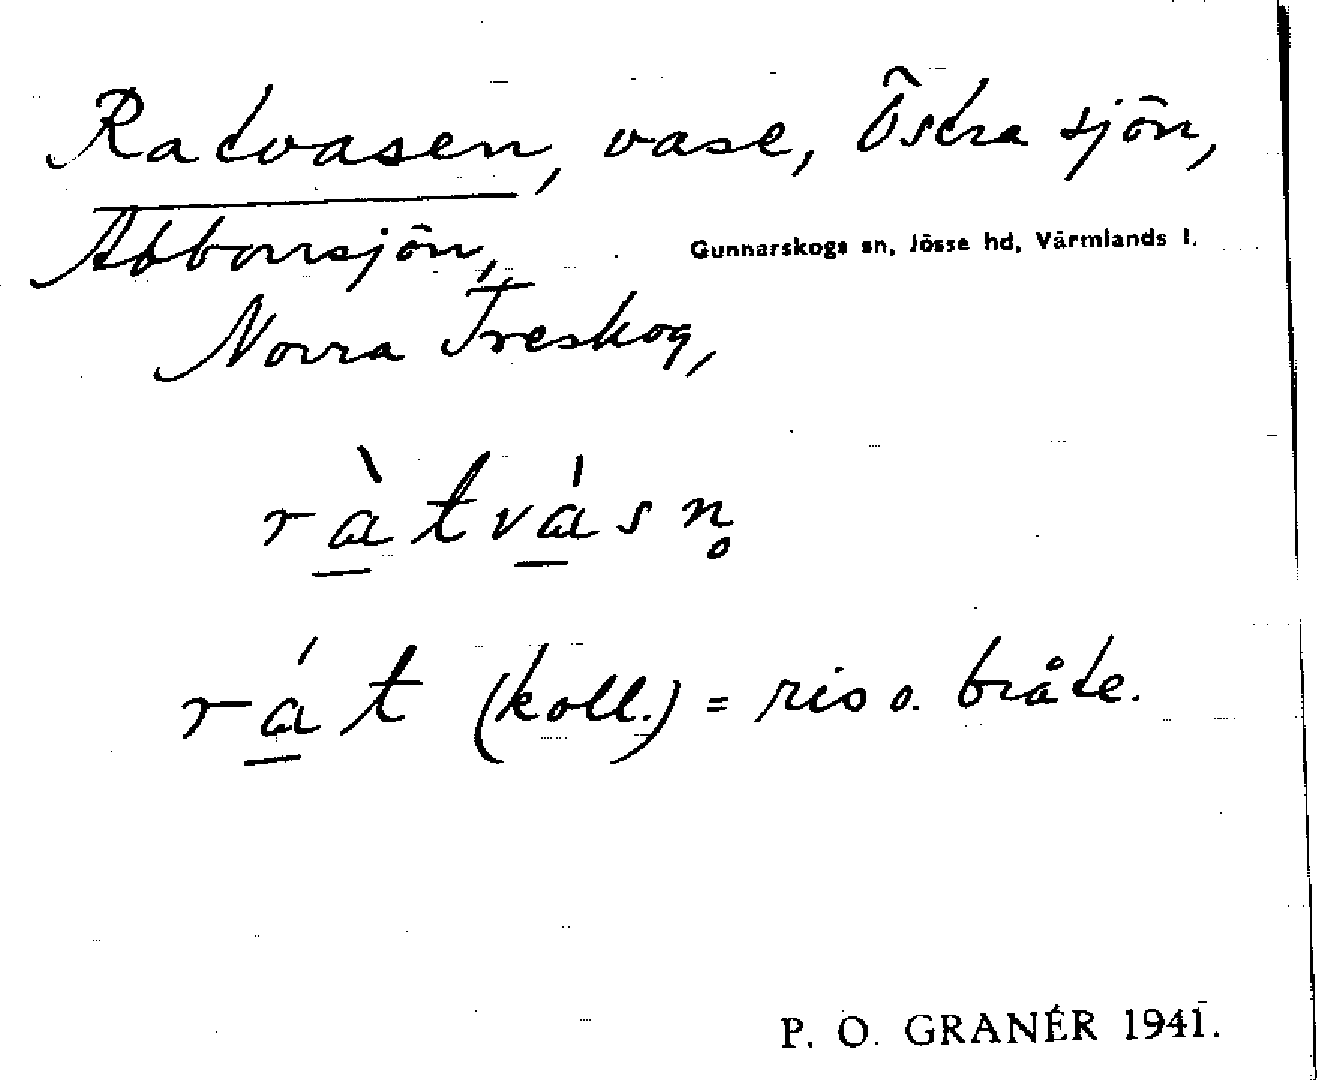 Ratvasen, vase, Östra sjön,
Abborrsjön,
Gunnarskogs sn, Jösse hd, Värmlands l.
Norra Treskog,
rà̱tvá̱sn̥
rá̱t (koll.) = ris o. bråte.
P. O. GRANÉR 1941.